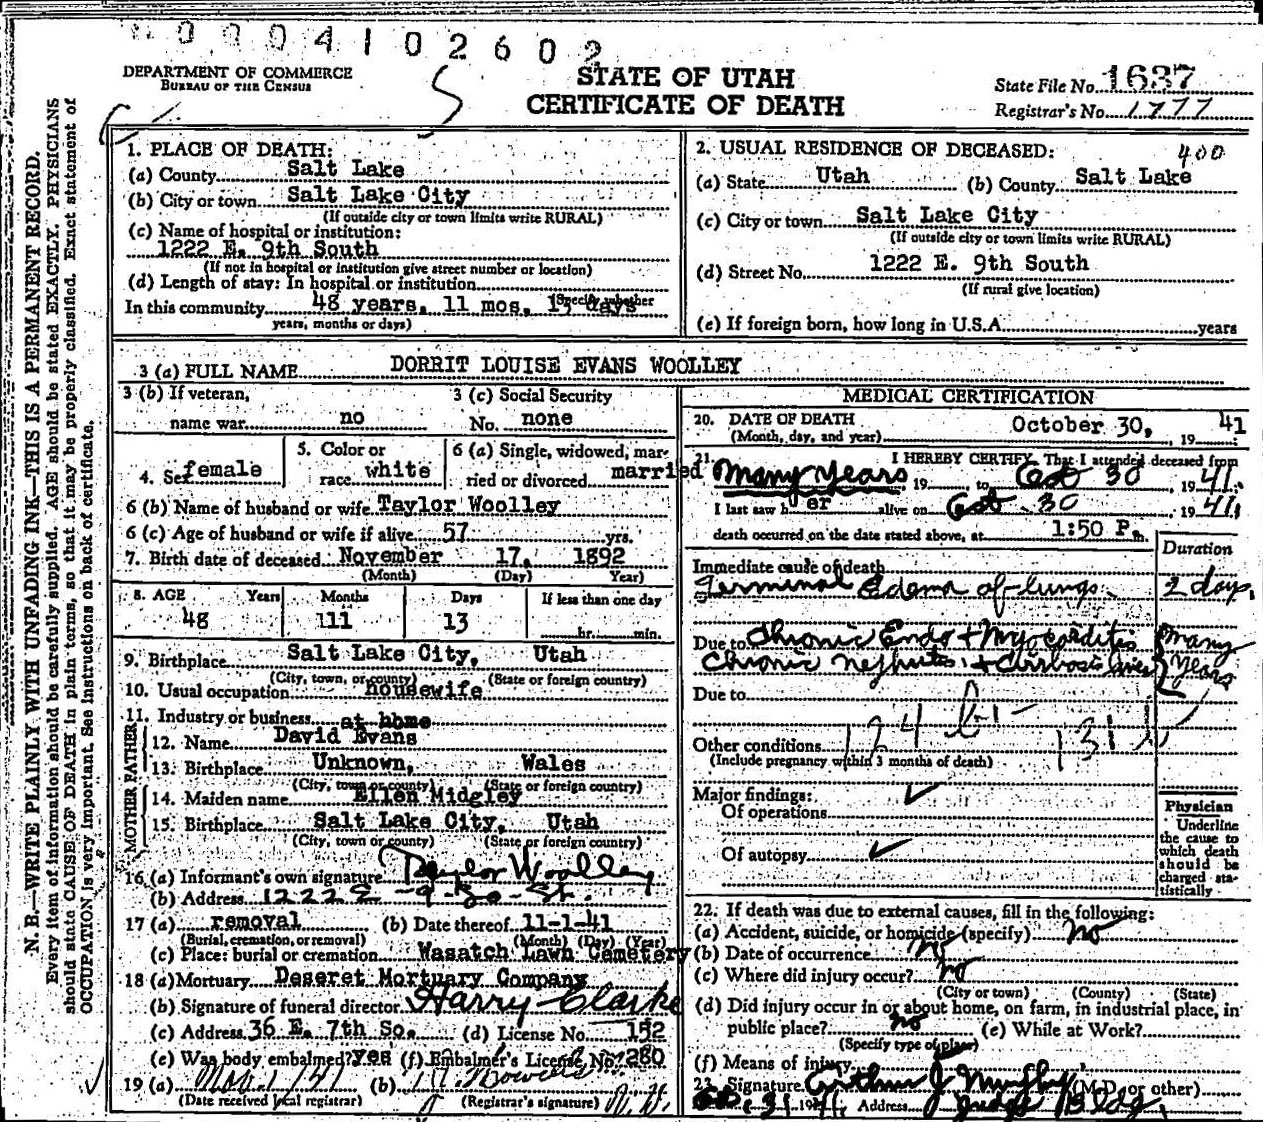 0004102602
DEPARTMENT OF COMMERCE
BUREAU OF THE CENSUS
STATE OF UTAH
CERTIFICATE OF DEATH
State File No. 1637
Registrar's No. 1777
N. B.—WRITE PLAINLY WITH UNFADING INK—THIS IS A PERMANENT RECORD.
Every item of information should be carefully supplied. AGE should be stated EXACTLY. PHYSICIANS
should state CAUSE OF DEATH in plain terms, so that it may be properly classified. Exact statement of
OCCUPATION is very important. See instructions on back of certificate.
1. PLACE OF DEATH:
(a) County Salt Lake
(b) City or town Salt Lake City
(If outside city or town limits write RURAL)
(c) Name of hospital or institution:
1222 E. 9th South
(If not in hospital or institution give street number or location)
(d) Length of stay: In hospital or institution
(Specify whether
In this community 48 years, 11 mos, 13 days
years, months or days)
2. USUAL RESIDENCE OF DECEASED: 400
(a) State Utah (b) County Salt Lake
(c) City or town Salt Lake City
(If outside city or town limits write RURAL)
(d) Street No. 1222 E. 9th South
(If rural give location)
(e) If foreign born, how long in U.S.A. years
3 (a) FULL NAME DORRIT LOUISE EVANS WOOLLEY
3 (b) If veteran,
name war no
3 (c) Social Security
No. none
4. Sex female
5. Color or
race white
6 (a) Single, widowed, mar-
ried or divorced married
6 (b) Name of husband or wife Taylor Woolley
6 (c) Age of husband or wife if alive 57 yrs.
7. Birth date of deceased November 17, 1892
(Month) (Day) Year)
8. AGE Years Months Days If less than one day
48 11 13 hr. min.
9. Birthplace Salt Lake City, Utah
(City, town, or county) (State or foreign country)
10. Usual occupation housewife
11. Industry or business at home
FATHER
12. Name David Evans
13. Birthplace Unknown, Wales
(City, town or county) (State or foreign country)
MOTHER
14. Maiden name Ellen Midgley
15. Birthplace Salt Lake City, Utah
(City, town or county) (State or foreign country)
16 (a) Informant's own signature Taylor Woolley
(b) Address 1222 E - 9 - So - St.
17 (a) removal (b) Date thereof 11-1-41
(Burial, cremation, or removal) (Month) (Day) (Year)
(c) Place: burial or cremation Wasatch Lawn Cemetery
18 (a) Mortuary Deseret Mortuary Company
(b) Signature of funeral director Harry Clarke
(c) Address 36 E. 7th So. (d) License No. 152
(e) Was body embalmed? yes (f) Embalmer's License No. 280
19 (a) Nov. 1 1941 (b)
(Date received local registrar) (Registrar's signature)
MEDICAL CERTIFICATION
20. DATE OF DEATH October 30, 19 41
(Month, day, and year)
21. I HEREBY CERTIFY, That I attended deceased from
Many Years, 19 to Oct 30 1941.
I last saw h er alive on Oct 30 1941,
death occurred on the date stated above, at 1:50 P m.
Duration
Immediate cause of death
Terminal Edema of lungs. 2 days.
Due to Chronic Endo + Myocarditis many
Chronic nephritis + Cirrhosis liver Years
Due to
124 b-1 131
Other conditions
(Include pregnancy within 3 months of death)
Major findings:
Of operations
Of autopsy
Physician
Underline
the cause to
which death
should be
charged sta-
tistically
22. If death was due to external causes, fill in the following:
(a) Accident, suicide, or homicide (specify) No
(b) Date of occurrence no
(c) Where did injury occur? no
(City or town) (County) (State)
(d) Did injury occur in or about home, on farm, in industrial place, in
public place? no (e) While at Work?
(Specify type of place)
(f) Means of injury
23. Signature Arthur J Murphy (M.D. or other)
31 1941, Address Judge Bldg.